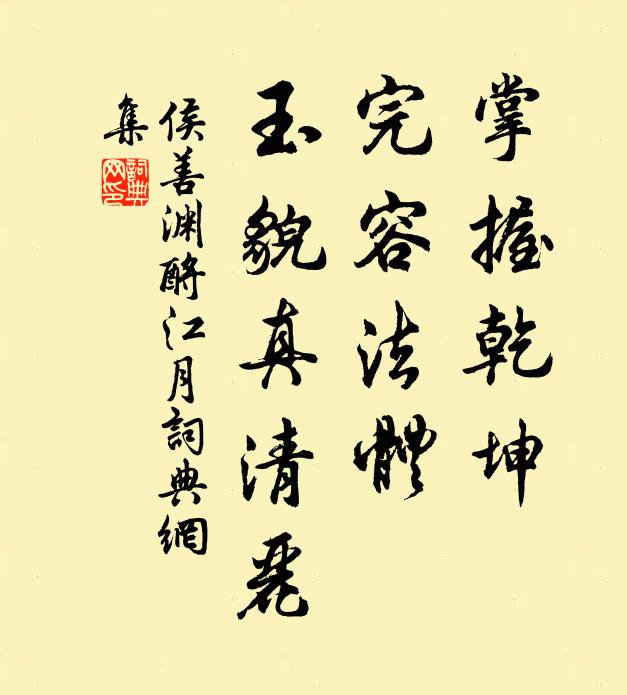 掌握乾坤
完容法體
玉貌真清麗
侯善渊酹江月詞典網
集
詞典網印